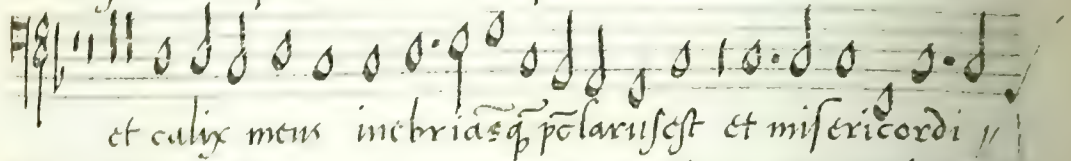 et calix meus inebriāsq̄ p̄clarusest et misericordi